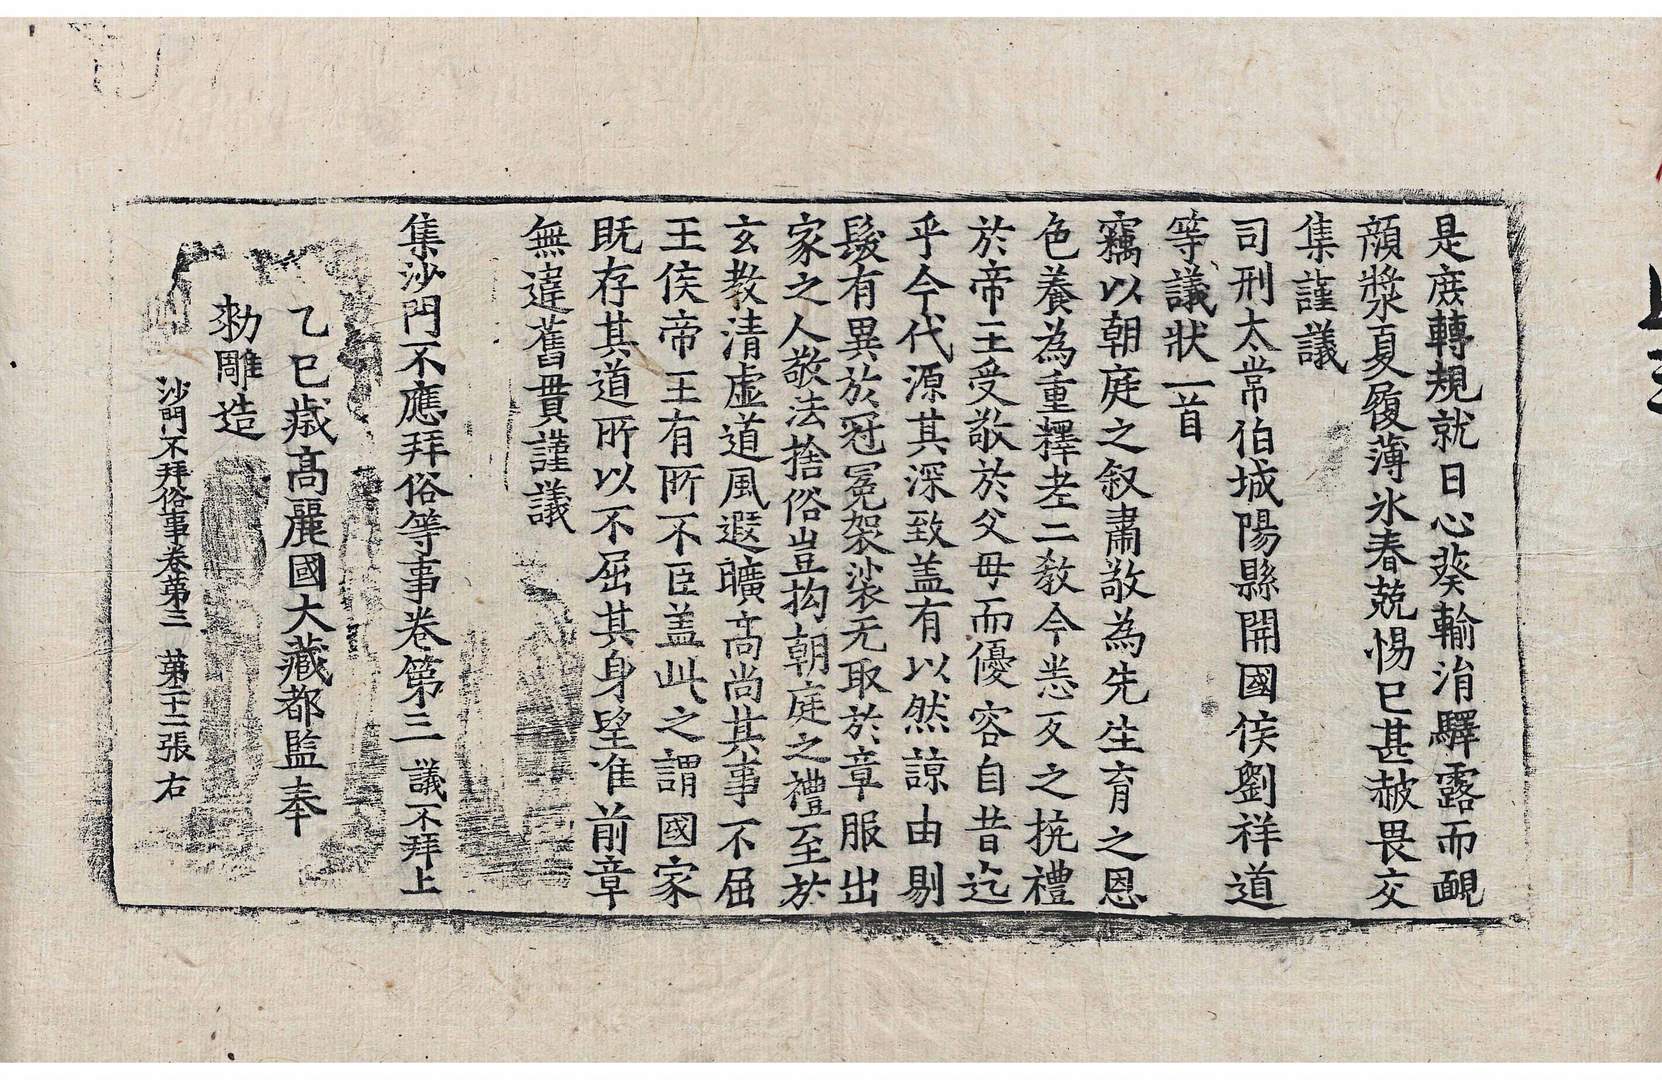 是庶轉規就日心葵輸涓驛露而靦
顔漿夏履薄氷春兢惕已甚赧畏交
集謹議
司刑太常伯城陽縣開國侯劉祥道
等議狀一首
竊以朝庭之叙肅敬為先生育之恩
色養為重釋老二教今悉反之抗禮
於帝王受敬於父母而優容自昔迄
乎今代源其深致盖有以然諒由剔
髮有異於冠冕袈裟无取於章服出
家之人敬法捨俗豈拘朝庭之禮至於
玄教清虛道風遐曠高尚其事不屈
王侯帝王有所不臣盖此之謂國家
既存其道所以不屈其身望准前章
無違舊貫謹議
集沙門不應拜俗等事卷第三 議不拜上
乙巳歲高麗國大藏都監奉
勑雕造
沙門不拜俗事卷第三 第二十二張 右